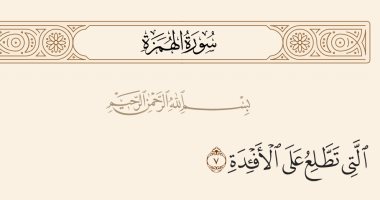 سُورَةُ الهُمَزَةِ
بِسْمِ اللَّهِ الرَّحْمَٰنِ الرَّحِيمِ
الَّتِي تَطَّلِعُ عَلَى الْأَفْئِدَةِ ٧